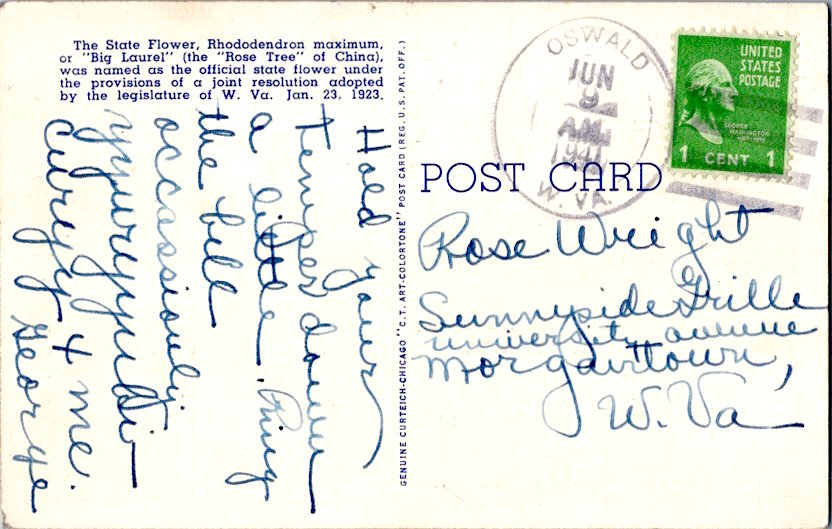 The State Flower, Rhododendron maximum,
or "Big Laurel" (the "Rose Tree" of China),
was named as the official state flower under
the provisions of a joint resolution adopted
by the legislature of W. Va. Jan. 23, 1923.
Hold your
Temper down
a little. Ring
the bell
occassionly.
Curgy & me.
George
GENUINE CURTEICH-CHICAGO "C.T. ART-COLORTONE" POST CARD (REG. U.S. PAT. OFF.)
OSWALD
JUN
9
AM
1941
W. VA.
UNITED
STATES
POSTAGE
GEORGE
WASHINGTON
1 CENT 1
POST CARD
Rose Wright
Sunnyside Grille
university avenue
Morgantown,
W. Va